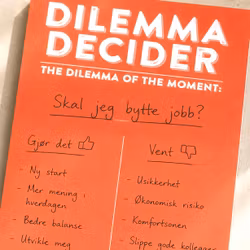 DILEMMA
DECIDER
THE DILEMMA OF THE MOMENT:
Skal jeg bytte jobb?
Gjør det
- Ny start
- Mer mening i
hverdagen
- Bedre balanse
- Utvikle meg
Vent
- Usikkerhet
- Økonomisk risiko
- Komfortsonen
- Slippe gode kollegaer